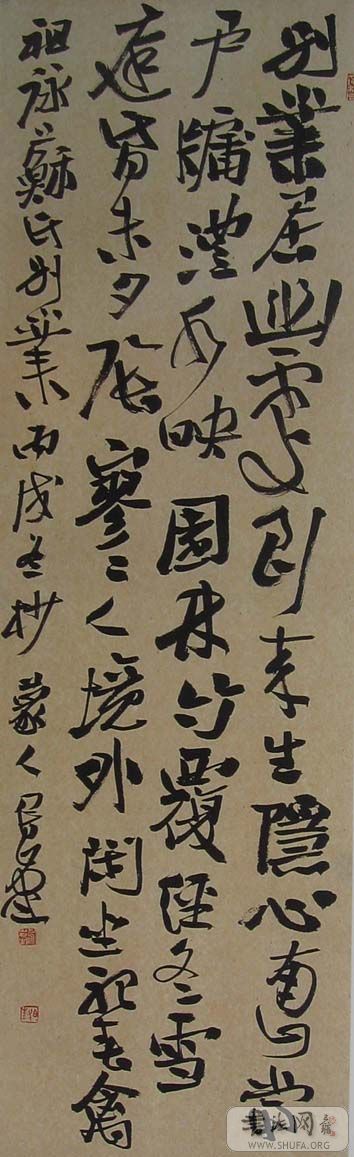 别業居幽處到来生隱心南山當
户牖澧水映園林竹覆經冬雪
庭昏未夕陰寥々人境外閑坐聽春禽
祖詠蘇氏别業丙戌冬抄蒙人
書法网
WWW.SHUFA.ORG